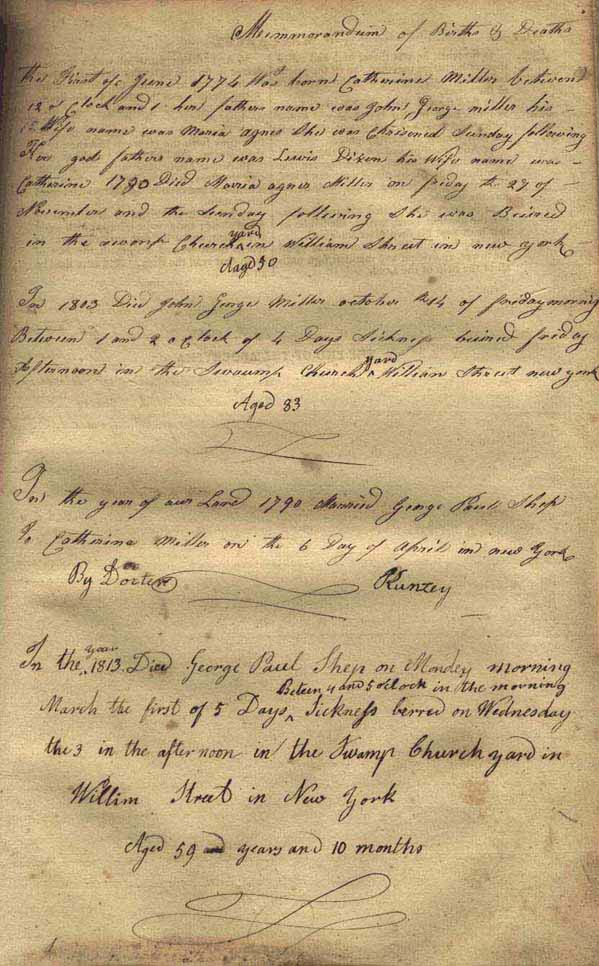 Memmorandum of Births & Deaths
the First of June 1774 Was born Catherine Miller betwend
12 o Clock and 1 her fathers name was John George miller his
Wife name was Maria agnes She was Chrisened Sunday following
Her gods fathers name was Lewis Dixon his Wife name was
Catherine 1790 Died Maria agnes Miller on friday the 27 of
November and the Sunday following She was Buried
in the swamp Church yard in William Street in new york
Aged 50
In 1803 Died John George Miller october the 14 of friday morning
Between 1 and 2 o Clock of 4 Days Sickness buried friday
Afternoon in the Swaump Church yard William Street new york
Aged 83
In the year of our Lord 1790 Married George Paul Shep
To Catherine Miller on the 6 Day of April in new York
By Docter Kunzey
In the year 1813 Died George Paul Shep on Mondey morning
Beteen 4 and 5 o'clock in the morning
March the first of 5 Days Sickness berred on Wednesday
the 3 in the afternoon in the Swamp Church yard in
Willim Street in New York
Aged 59 and years and 10 months